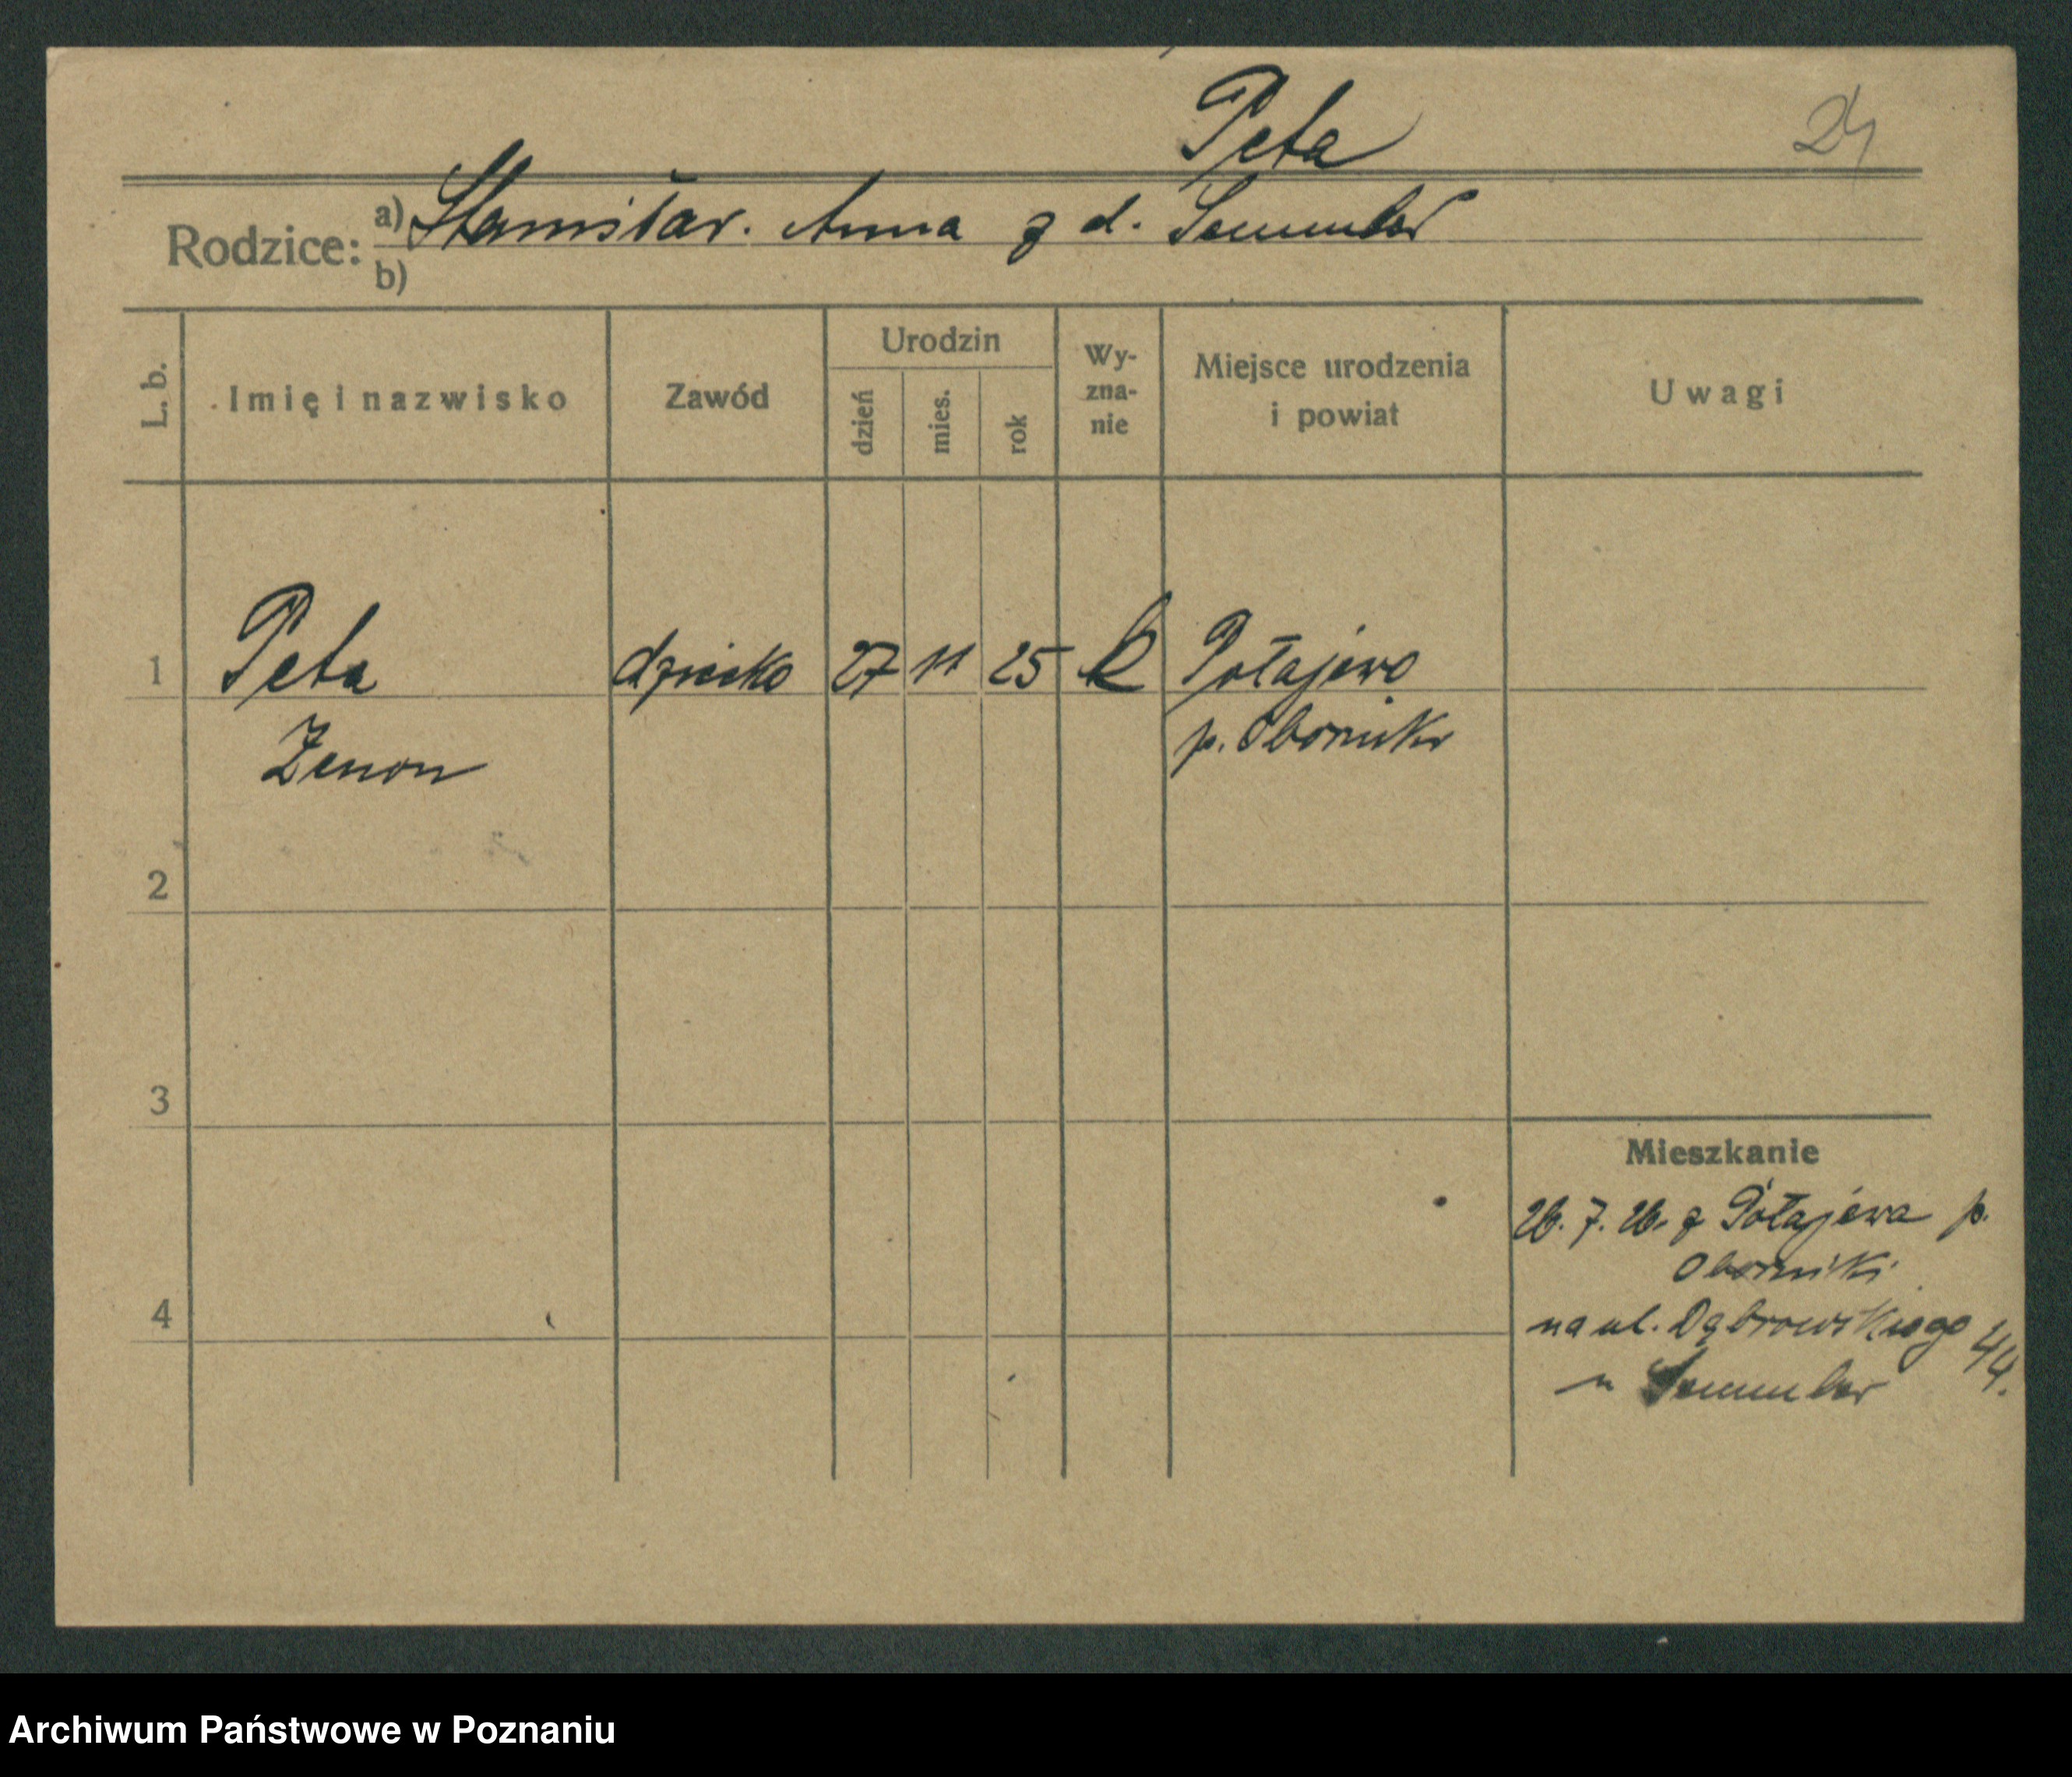 Peta
24
Rodzice: a) Stanisław. Anna z d. Semmler
b)
L. b.
Imię i nazwisko
Zawód
Urodzin
dzień
mies.
rok
Wy-
zna-
nie
Miejsce urodzenia
i powiat
Uwagi
1 Peta dziecko 27 11 25 k Połajewo
Zenon p. Oborniki
2
3
Mieszkanie
26. 7. 26. z Połajewa p.
Oborniki
4
na ul. Dąbrowskiego 44.
u Semmler
Archiwum Państwowe w Poznaniu